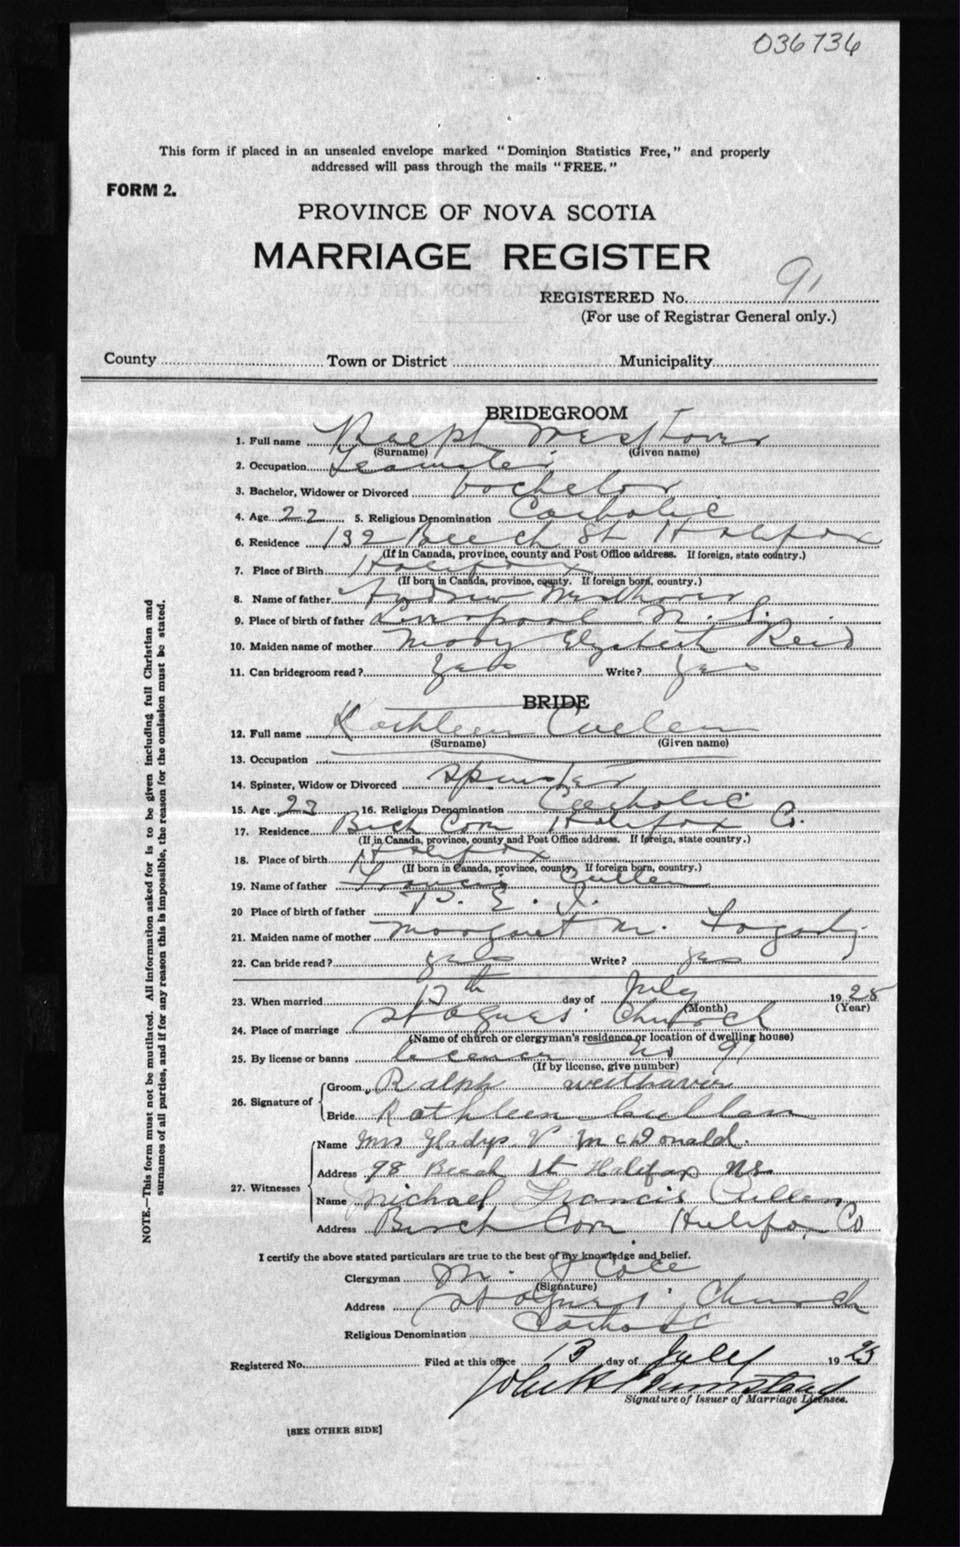 036736
This form if placed in an unsealed envelope marked "Dominion Statistics Free," and properly
addressed will pass through the mails "FREE."
FORM 2.
PROVINCE OF NOVA SCOTIA
MARRIAGE REGISTER
REGISTERED No. 91
(For use of Registrar General only.)
County Town or District Municipality
BRIDEGROOM
1. Full name Ralph Westhaver
(Surname) (Given name)
2. Occupation Teamster
3. Bachelor, Widower or Divorced bachelor
4. Age 22 5. Religious Denomination Catholic
6. Residence 132 Beech St Halifax
(If in Canada, province, county and Post Office address. If foreign, state country.)
7. Place of Birth Halifax
(If born in Canada, province, county. If foreign born, country.)
8. Name of father Andrew Westhaver
9. Place of birth of father Liverpool N.S.
10. Maiden name of mother Mary Elizabeth Reid
11. Can bridegroom read? Yes Write? Yes
BRIDE
12. Full name Kathleen Cullen
(Surname) (Given name)
13. Occupation
14. Spinster, Widow or Divorced Spinster
15. Age 23 16. Religious Denomination Catholic
17. Residence Birch Cove Halifax Co.
(If in Canada, province, county and Post Office address. If foreign, state country.)
18. Place of birth Halifax
(If born in Canada, province, county. If foreign born, country.)
19. Name of father Francis Cullen
20 Place of birth of father P. E. I.
21. Maiden name of mother Margaret M. Fogarty
22. Can bride read? yes Write? yes
23. When married th day of July 19
(Month) (Year)
24. Place of marriage St Agnes' Church
(Name of church or clergyman's residence or location of dwelling house)
25. By license or banns license No 91
(If by license, give number)
26. Signature of
Groom Ralph westhaver
Bride Kathleen Cullen
27. Witnesses
Name Mrs Gladys V McDonald.
Address 98 Beech St Halifax NS
Name Michael Francis Cullen
Address Birch Cove Halifax Co
I certify the above stated particulars are true to the best of my knowledge and belief.
Clergyman M.
(Signature)
Address St Agnes' Church
Religious Denomination Catholic
Registered No. Filed at this office 13 day of July 19
Signature of Issuer of Marriage Licenses.
[SEE OTHER SIDE]
NOTE.—This form must not be mutilated. All information asked for is to be given including full Christian and
surnames of all parties, and if for any reason this is impossible, the reason for the omission must be stated.